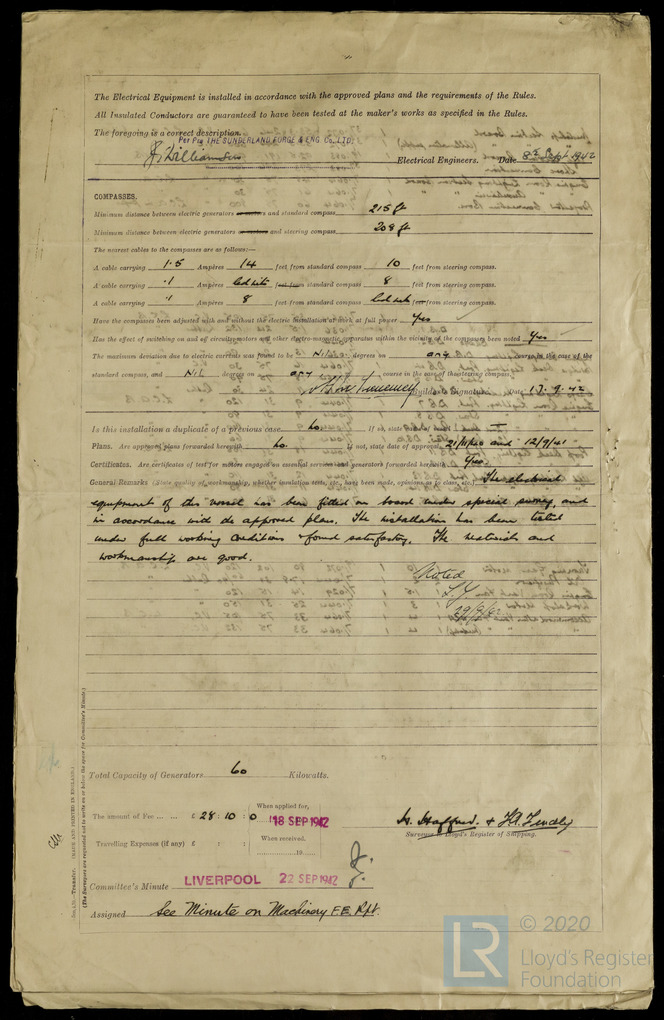 The Electrical Equipment is installed in accordance with the approved plans and the requirements of the Rules.
All Insulated Conductors are guaranteed to have been tested at the maker's works as specified in the Rules.
The foregoing is a correct description.
Per Pro THE SUNDERLAND FORGE & ENG. Co., LTD.
Electrical Engineers. Date 8th Sept 1942
COMPASSES.
Minimum distance between electric generators or motors and standard compass 215 ft
Minimum distance between electric generators or motors and steering compass 208 ft
The nearest cables to the compasses are as follows:—
A cable carrying 1.5 Ampères 14 feet from standard compass 10 feet from steering compass.
A cable carrying .1 Ampères led into feet from standard compass 8 feet from steering compass.
A cable carrying .1 Ampères 8 feet from standard compass led into feet from steering compass.
Have the compasses been adjusted with and without the electric installation at work at full power Yes
Has the effect of switching on and off circuits, motors and other electro-magnetic apparatus within the vicinity of the compasses been noted Yes
The maximum deviation due to electric currents was found to be Nil degrees on any course in the case of the
standard compass, and Nil degrees on any course in the case of the steering compass.
Builder's Signature. Date 17.9.42
Is this installation a duplicate of a previous case No If so, state name of vessel
Plans. Are approved plans forwarded herewith No If not, state date of approval 21/11/40 and 12/9/41
Certificates. Are certificates of test for motors engaged on essential services and generators forwarded herewith Yes.
General Remarks (State quality of workmanship, whether insulation tests, etc., have been made, opinions as to class, etc.) The electrical
equipment of this vessel has been fitted on board under special survey, and
in accordance with the approved plans. The installation has been tested
under full working conditions & found satisfactory. The materials and
workmanship are good.
Noted
29/9/42
Total Capacity of Generators 60 Kilowatts.
The amount of Fee ... ... £ 28 : 10 : 0 When applied for, 18 SEP 1942
Travelling Expenses (if any) £ : : When received, 19
Surveyor to Lloyd's Register of Shipping.
Committee's Minute LIVERPOOL 22 SEP 1942
Assigned See Minute on Machinery F.E. Rpt.
(MADE AND PRINTED IN ENGLAND.)
(The Surveyors are requested not to write on or below the space for Committee's Minute.)
© 2020
LR
Lloyd's Register
Foundation